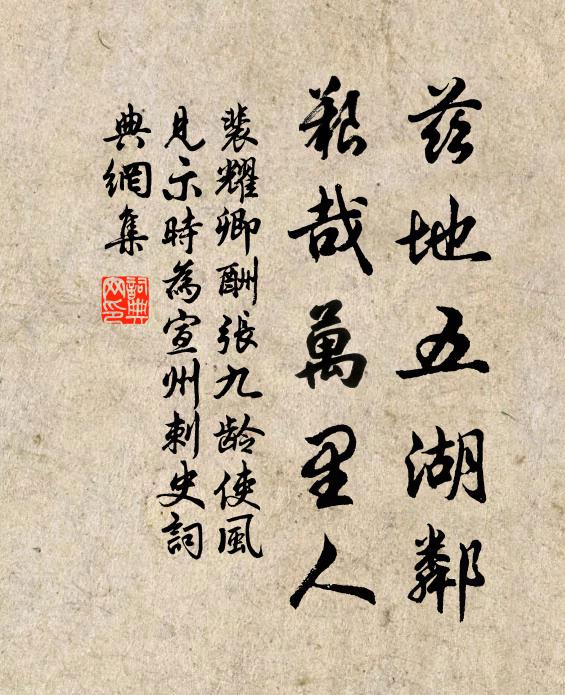 茲地五湖鄰
艱哉萬里人
裴耀卿酬張九齡使風
見示時為宣州刺史詞
典網集
詞典網印